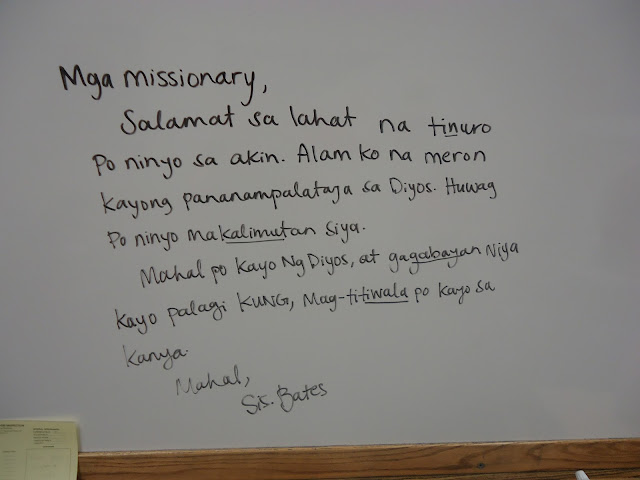 Mga missionary,
Salamat sa lahat na tinuro
Po ninyo sa akin. Alam ko na meron
kayong pananampalataja sa Diyos. Huwag
Po ninyo makalimutan siya.
Mahal po kayo Ng Diyos, at gagabayan Niya
kayo palagi KUNG, Mag-titiwala po kayo sa
Kanya.
Mahal,
Sis. Bates